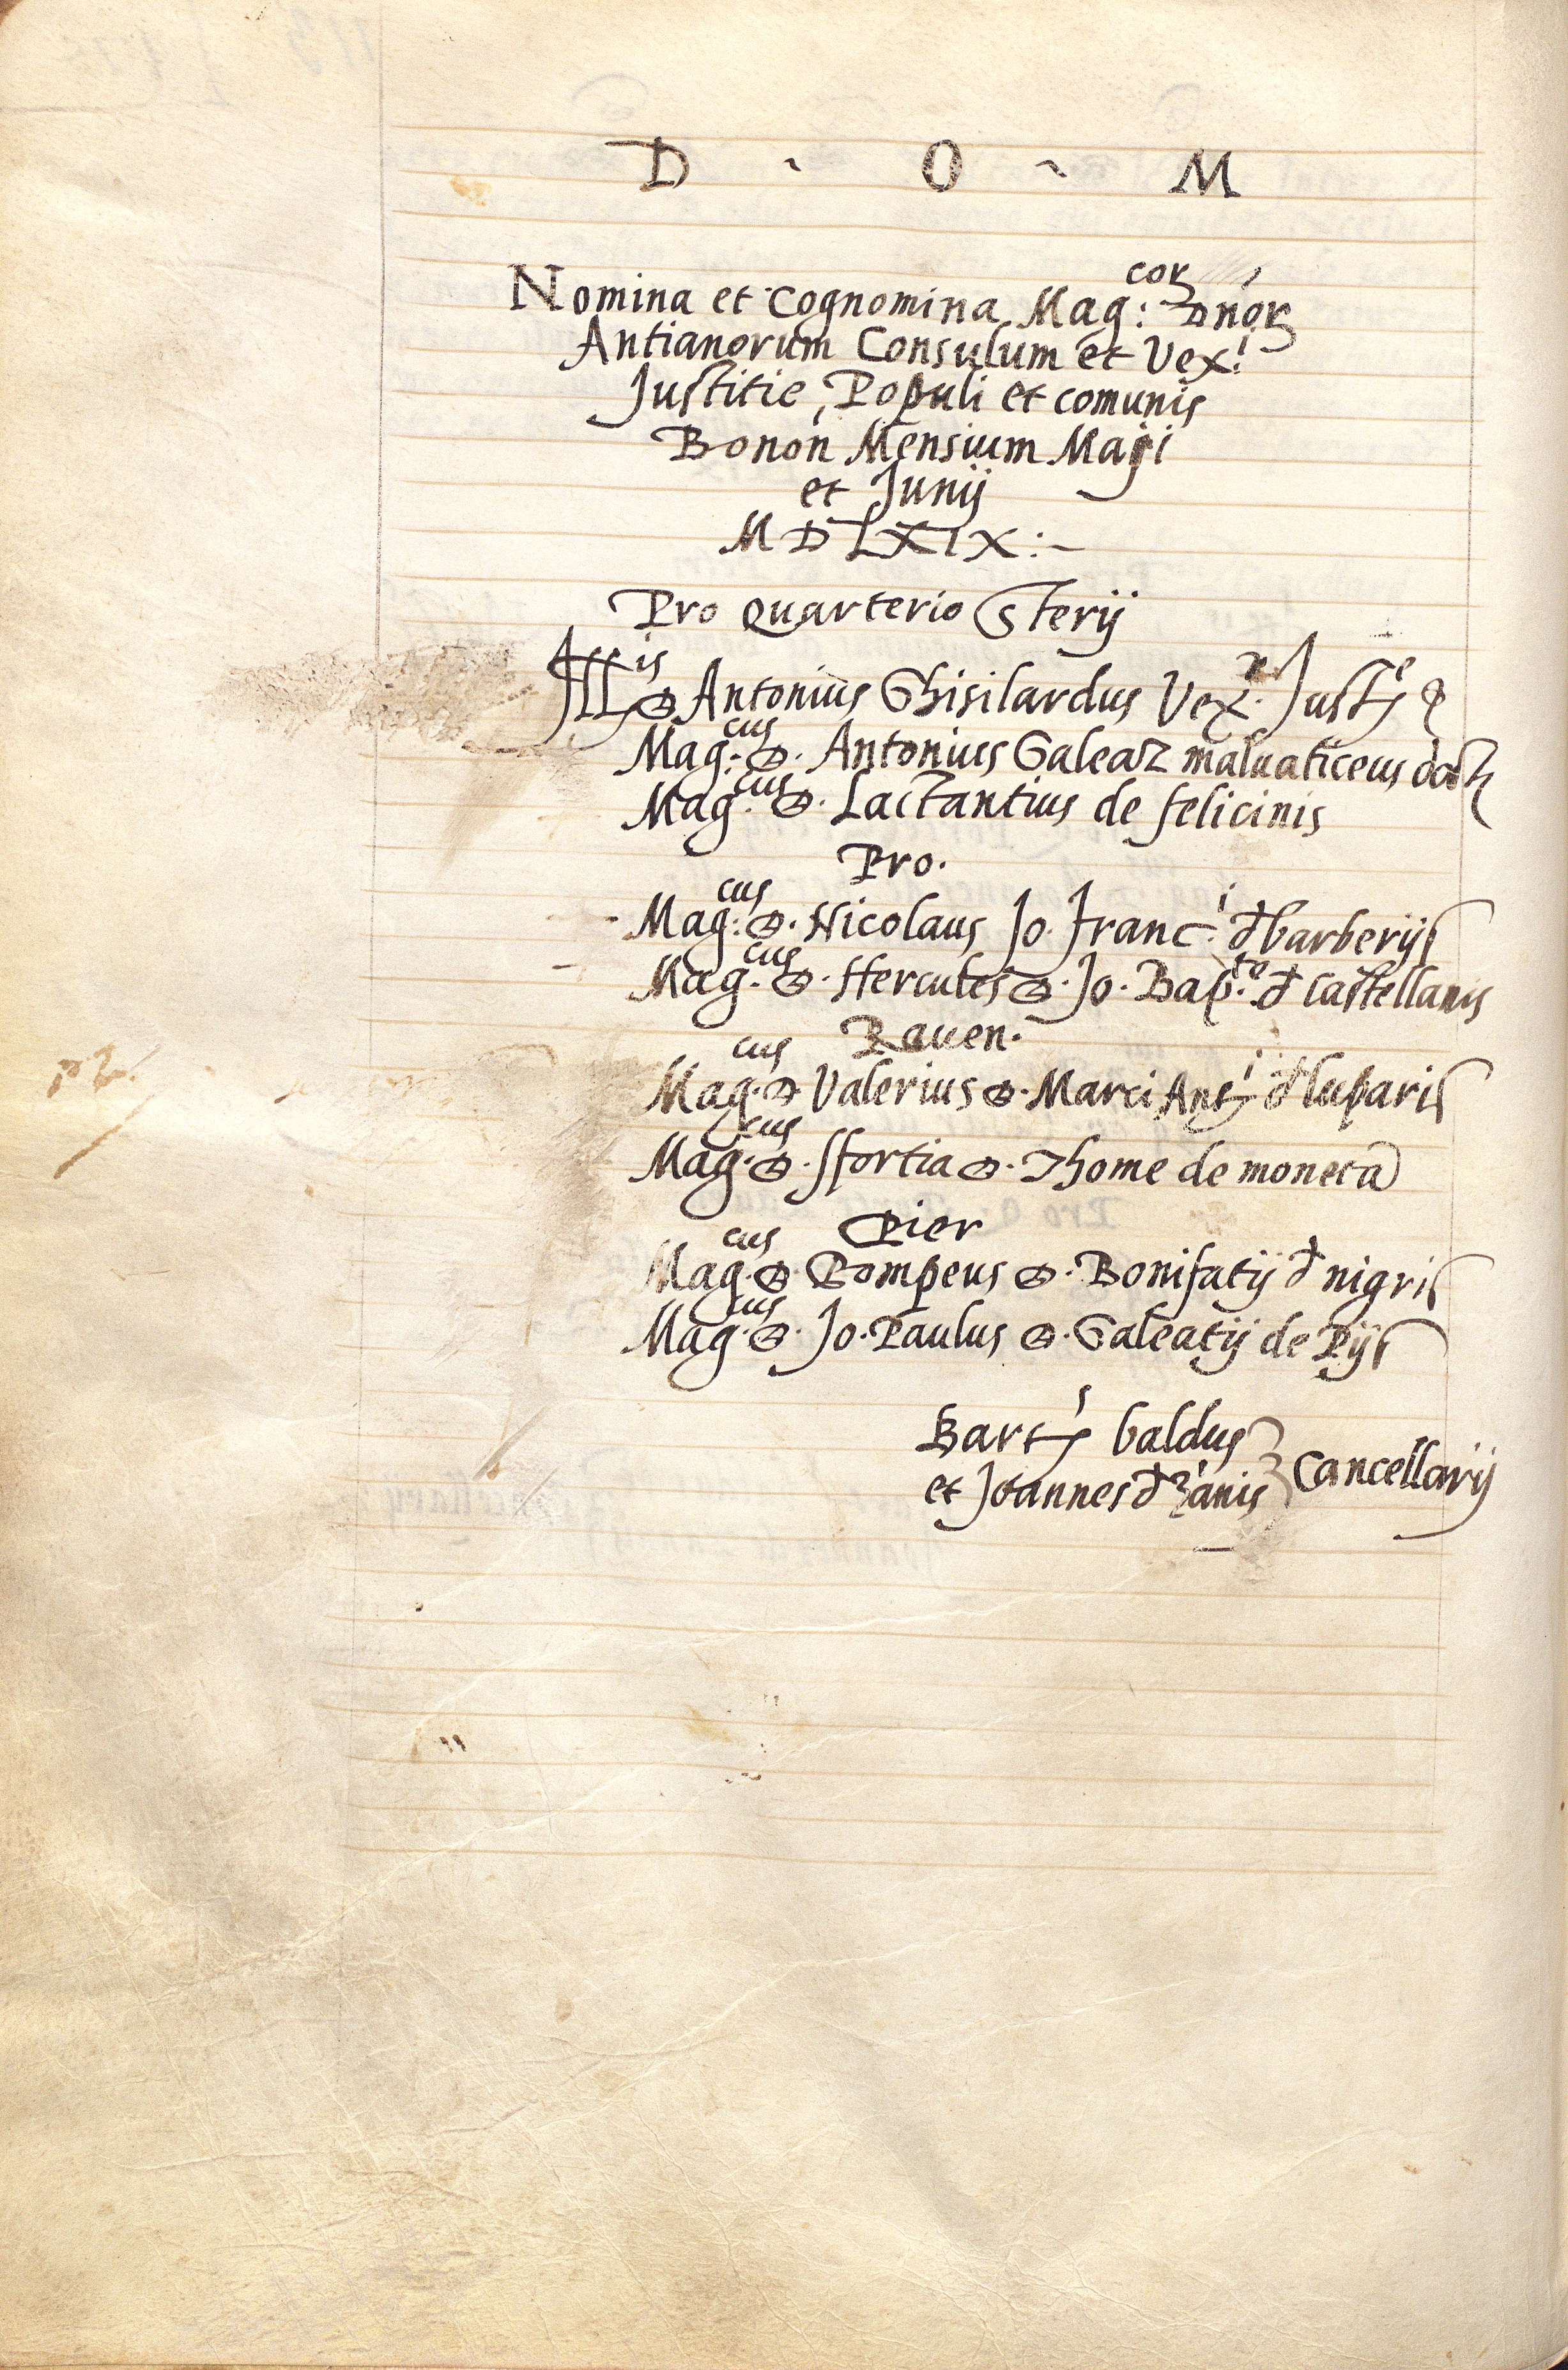 D ~ O ~ M
Nomina et Cognomina Mag:corꝝ Dnorꝝ
Antianorum Consulum et Vex!
Justitie, Populi et comunis
Bonon Mensium Maÿi
et Junij
MDLXIX:~
Pro Quarterio Sterij
Illis D Antonius Ghisilardus Vexr. Juste
Mag:cus D. Antonius Galeaz maluaticeus doct
Mag:cus D. Lactantius de felicinis
Pro.
Mag:cus D. Nicolaus Jo. Franci. đ barberijs
Mag.cus D. Hercules D. Jo. Bap.ta đ Castellanis
Rauen.
Mag.cus D Valerius D. Marci Anti đ luparis
Mag.cus D. Sfortia D. Thome de moneta
Pier
Mag.cus D Pompeus D. Bonifatij đ nigris
Mag.cus D. Jo. Paulus D. Galeatij de Pijs
Barts baldus
et Joannes đ zanis Cancellarij